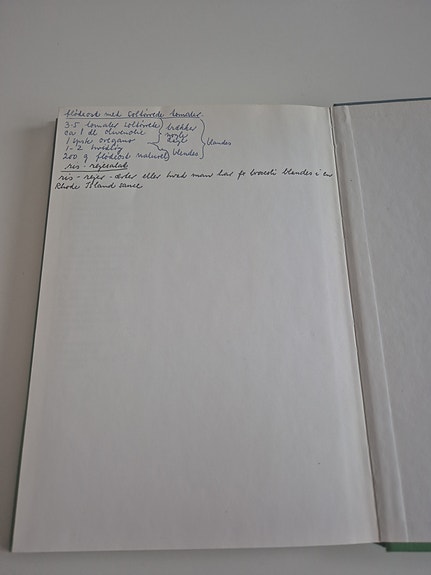 flødeost med soltørrede tomater.
3-5 tomater soltørrede
ca 1 dl olivenolie
1 spsk oregano
1-2 hvidløg
200 g flødeost naturel
hakker
blendes
blendes
ris - rejesalat
ris - rejer - ærter eller hvad man har for blandes i en
Rhode Island sauce